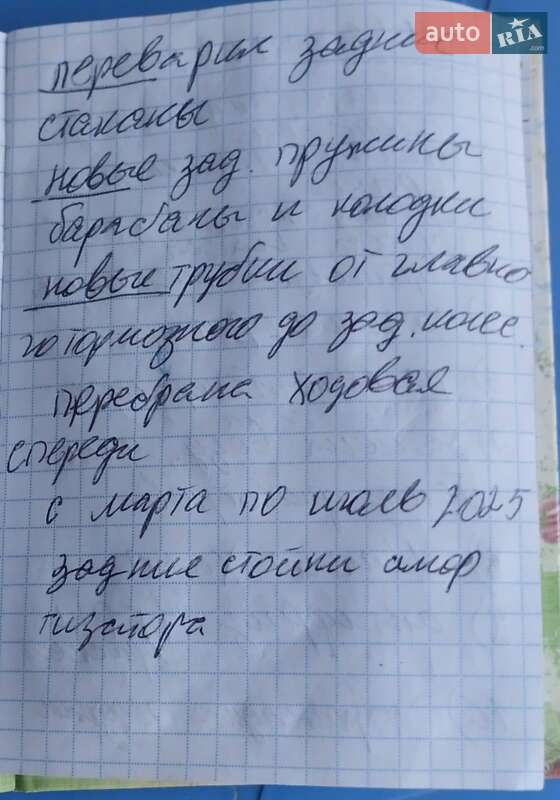 auto RIA .com
переварил задние
стаканы
новые зад. пружины
барабаны и колодки
новые трубки от главно
го тормозного до зад. колес.
перебрана ходовая
спереди
с марта по июль 2025
задние стойки амор
тизатора